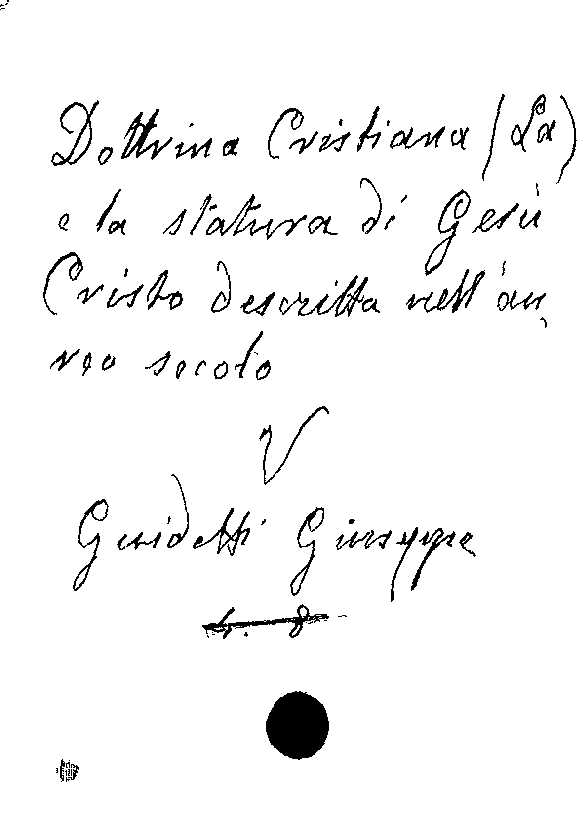 Dottrina Cristiana (La)
e la statura di Gesù
Cristo descritta nell'au,
reo secolo
V
Guidetti Giuseppe
4. 8